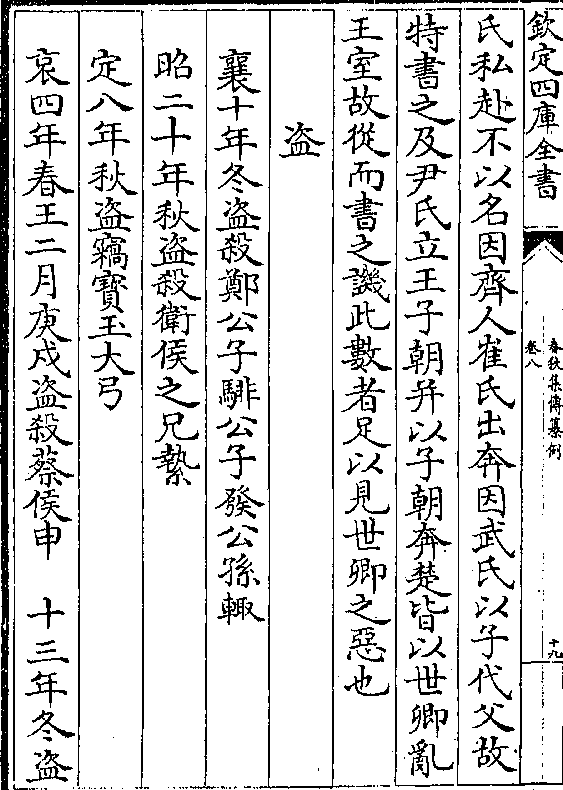 欽定四庫全書
春秋集傳纂例
卷八
十九
氏私赴不以名因齊人崔氏出奔因武氏以子代父故
特書之及尹氏立王子朝并以子朝奔楚皆以世卿亂
王室故從而書之譏此數者足以見世卿之惡也
盗
襄十年冬盗殺鄭公子騑公子發公孫輙
昭二十年秋盗殺衛侯之兄縶
定八年秋盗竊寳玉大弓
哀四年春王二月庚戌盗殺蔡侯申　十三年冬盗